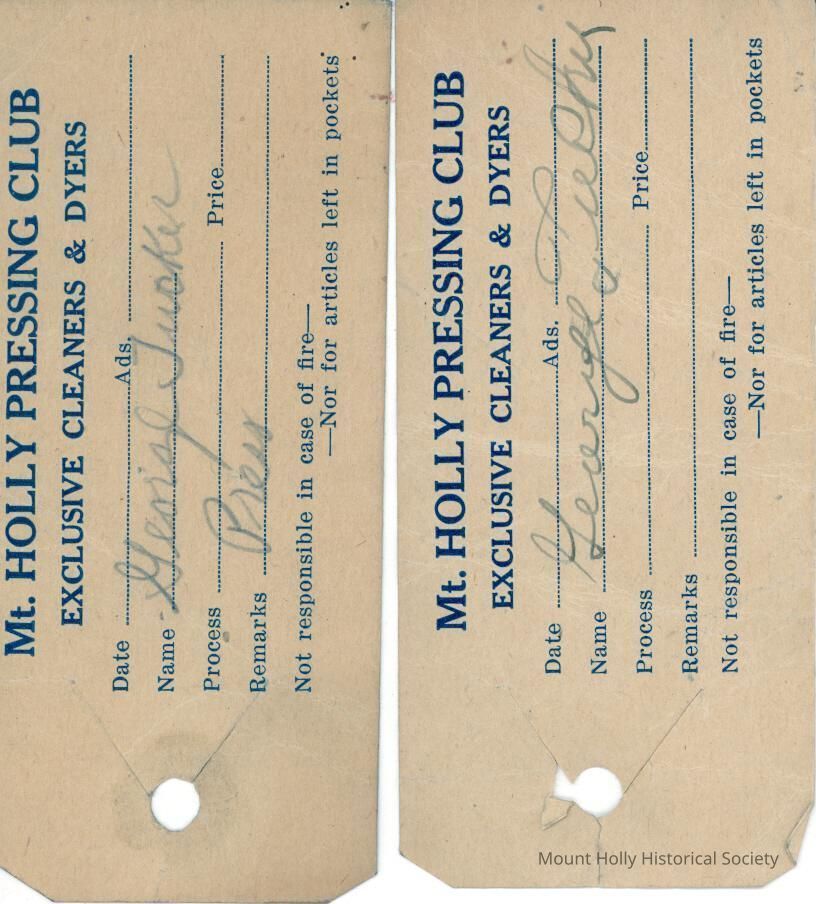 Mt. HOLLY PRESSING CLUB
EXCLUSIVE CLEANERS & DYERS
Date Ads.
Name George Tucker
Process Price
Remarks Press
Not responsible in case of fire—
—Nor for articles left in pockets
Mt. HOLLY PRESSING CLUB
EXCLUSIVE CLEANERS & DYERS
Date Ads.
Name George
Process Price
Remarks
Not responsible in case of fire—
—Nor for articles left in pockets
Mount Holly Historical Society